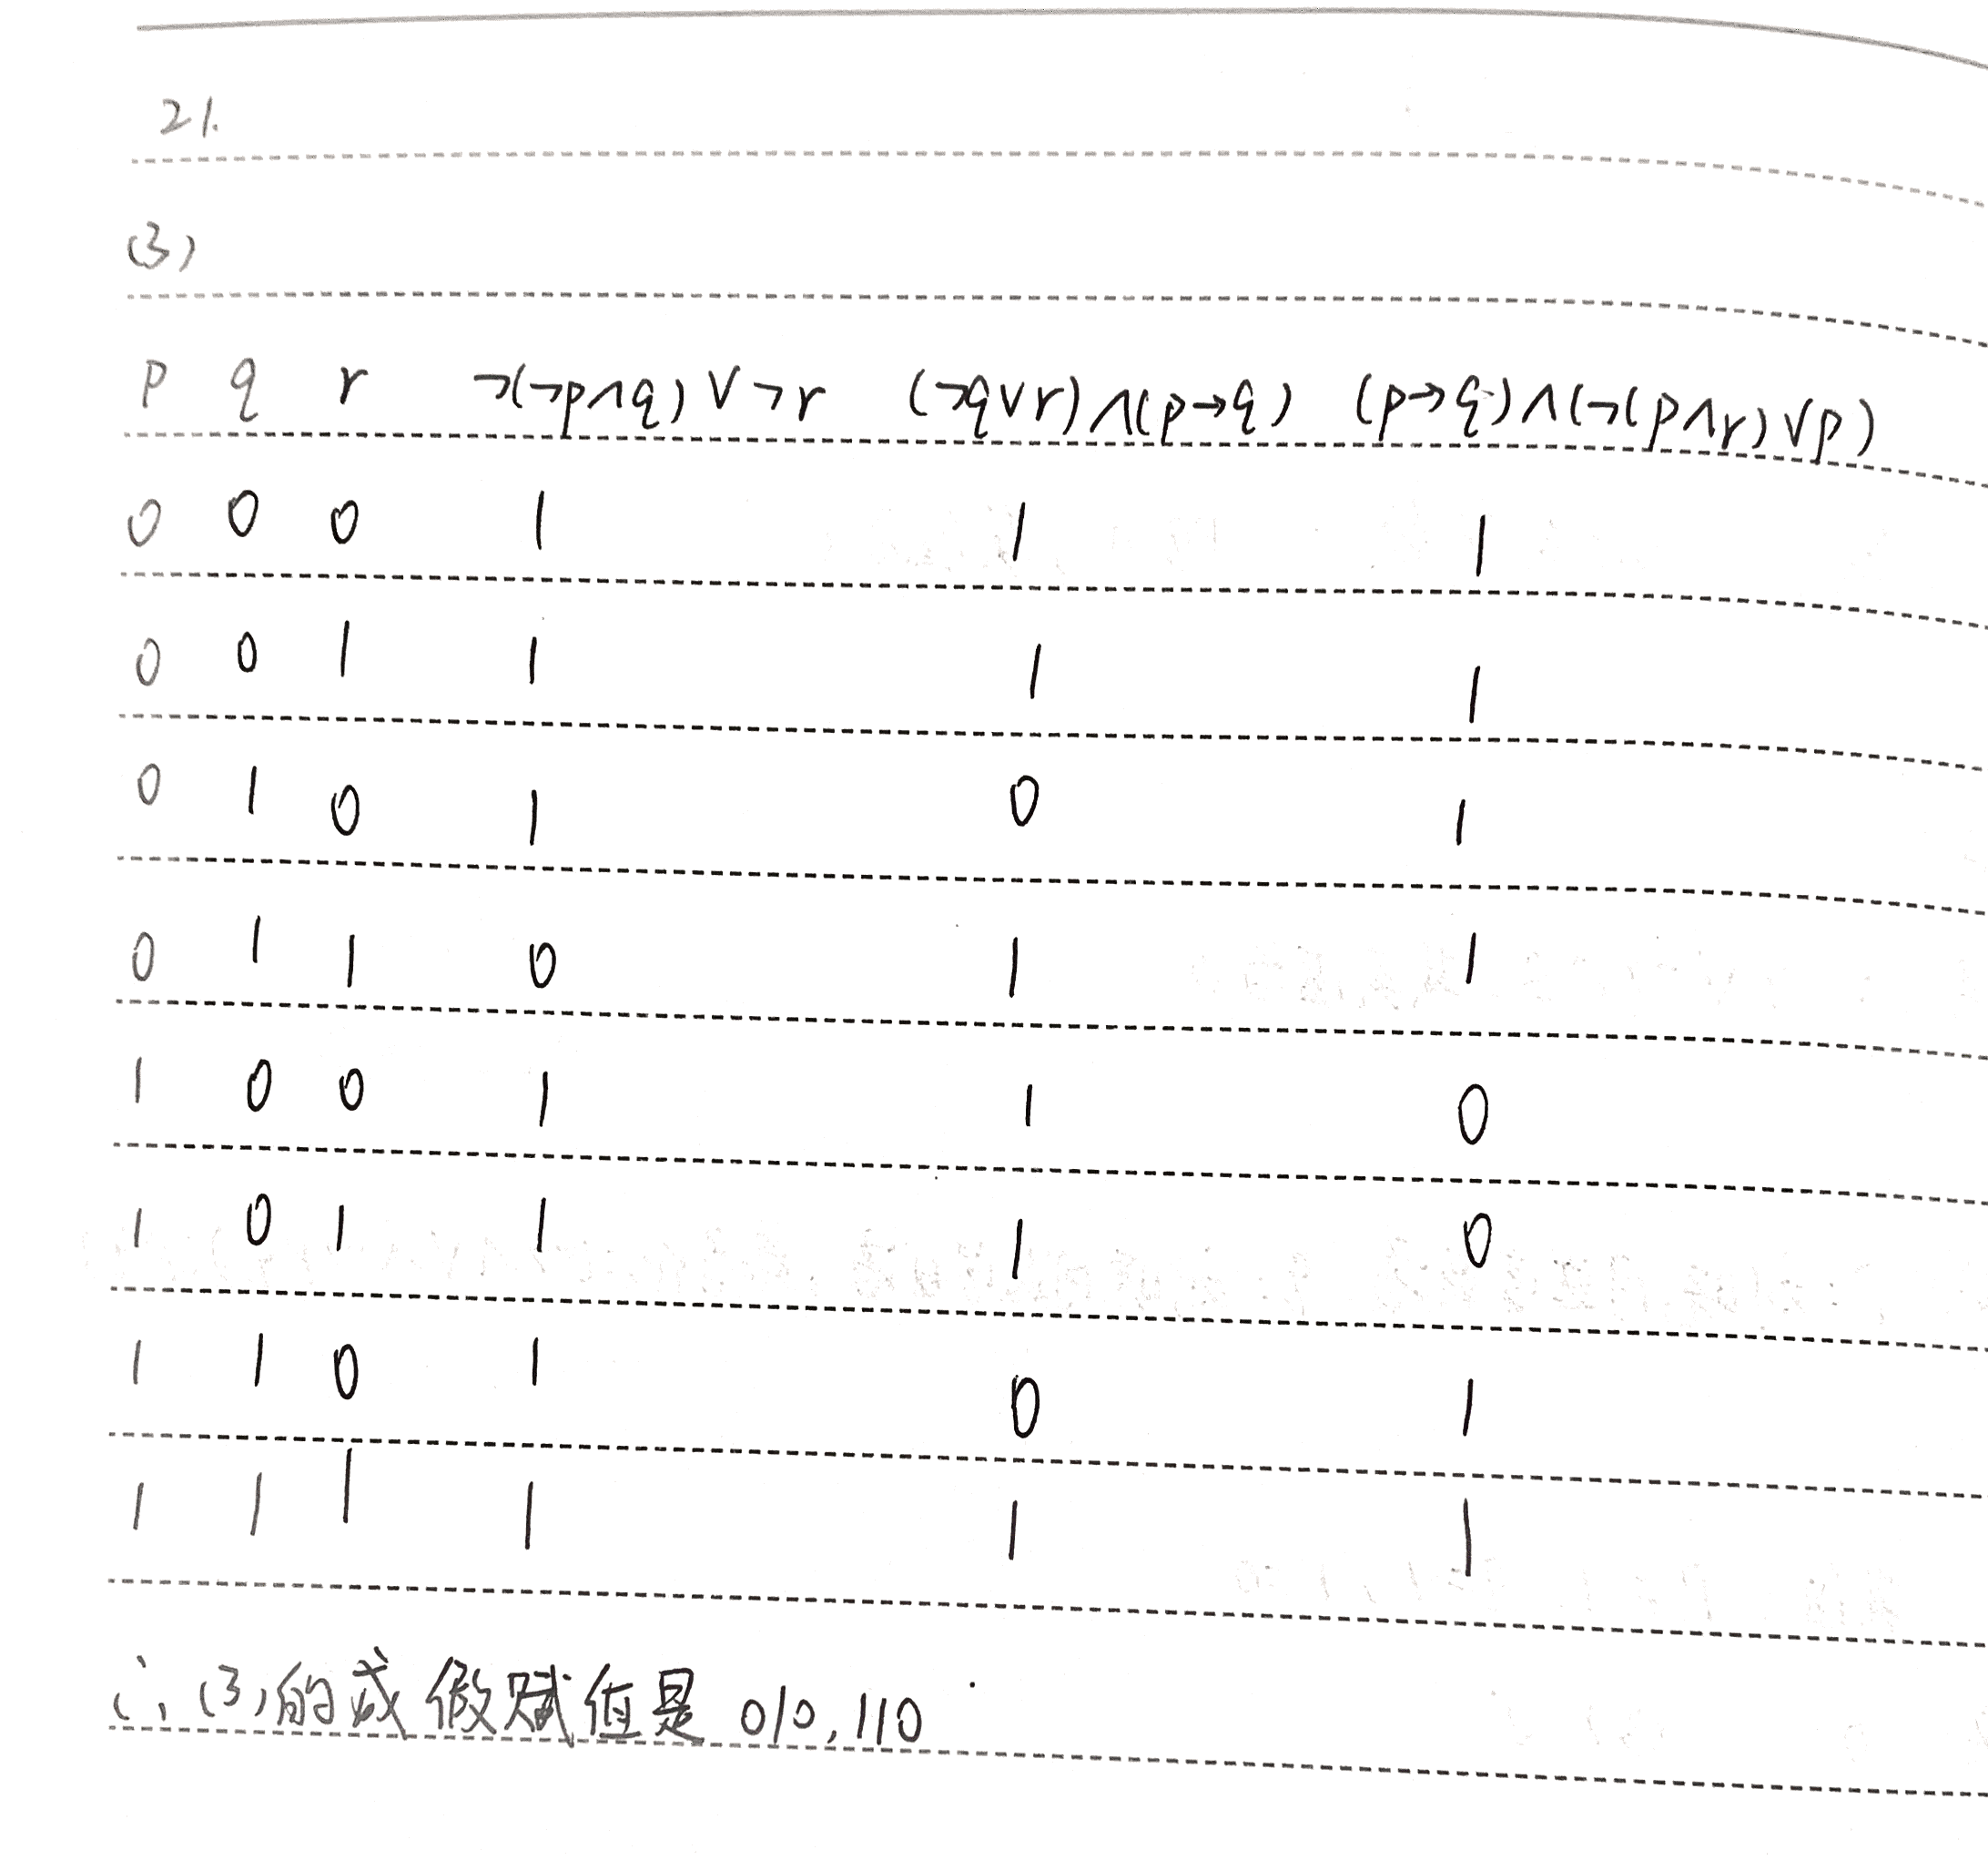 21.
(3)
p q r ¬(¬p∧q)∨¬r (¬q∨r)∧(p→q) (p→q)∧(¬(p∧r)∨p)
0 0 0 1 1 1
0 0 1 1 1 1
0 1 0 1 0 1
0 1 1 0 1 1
1 0 0 1 1 0
1 0 1 1 1 0
1 1 0 1 0 1
1 1 1 1 1 1
∴(3)的成假赋值是 010,110